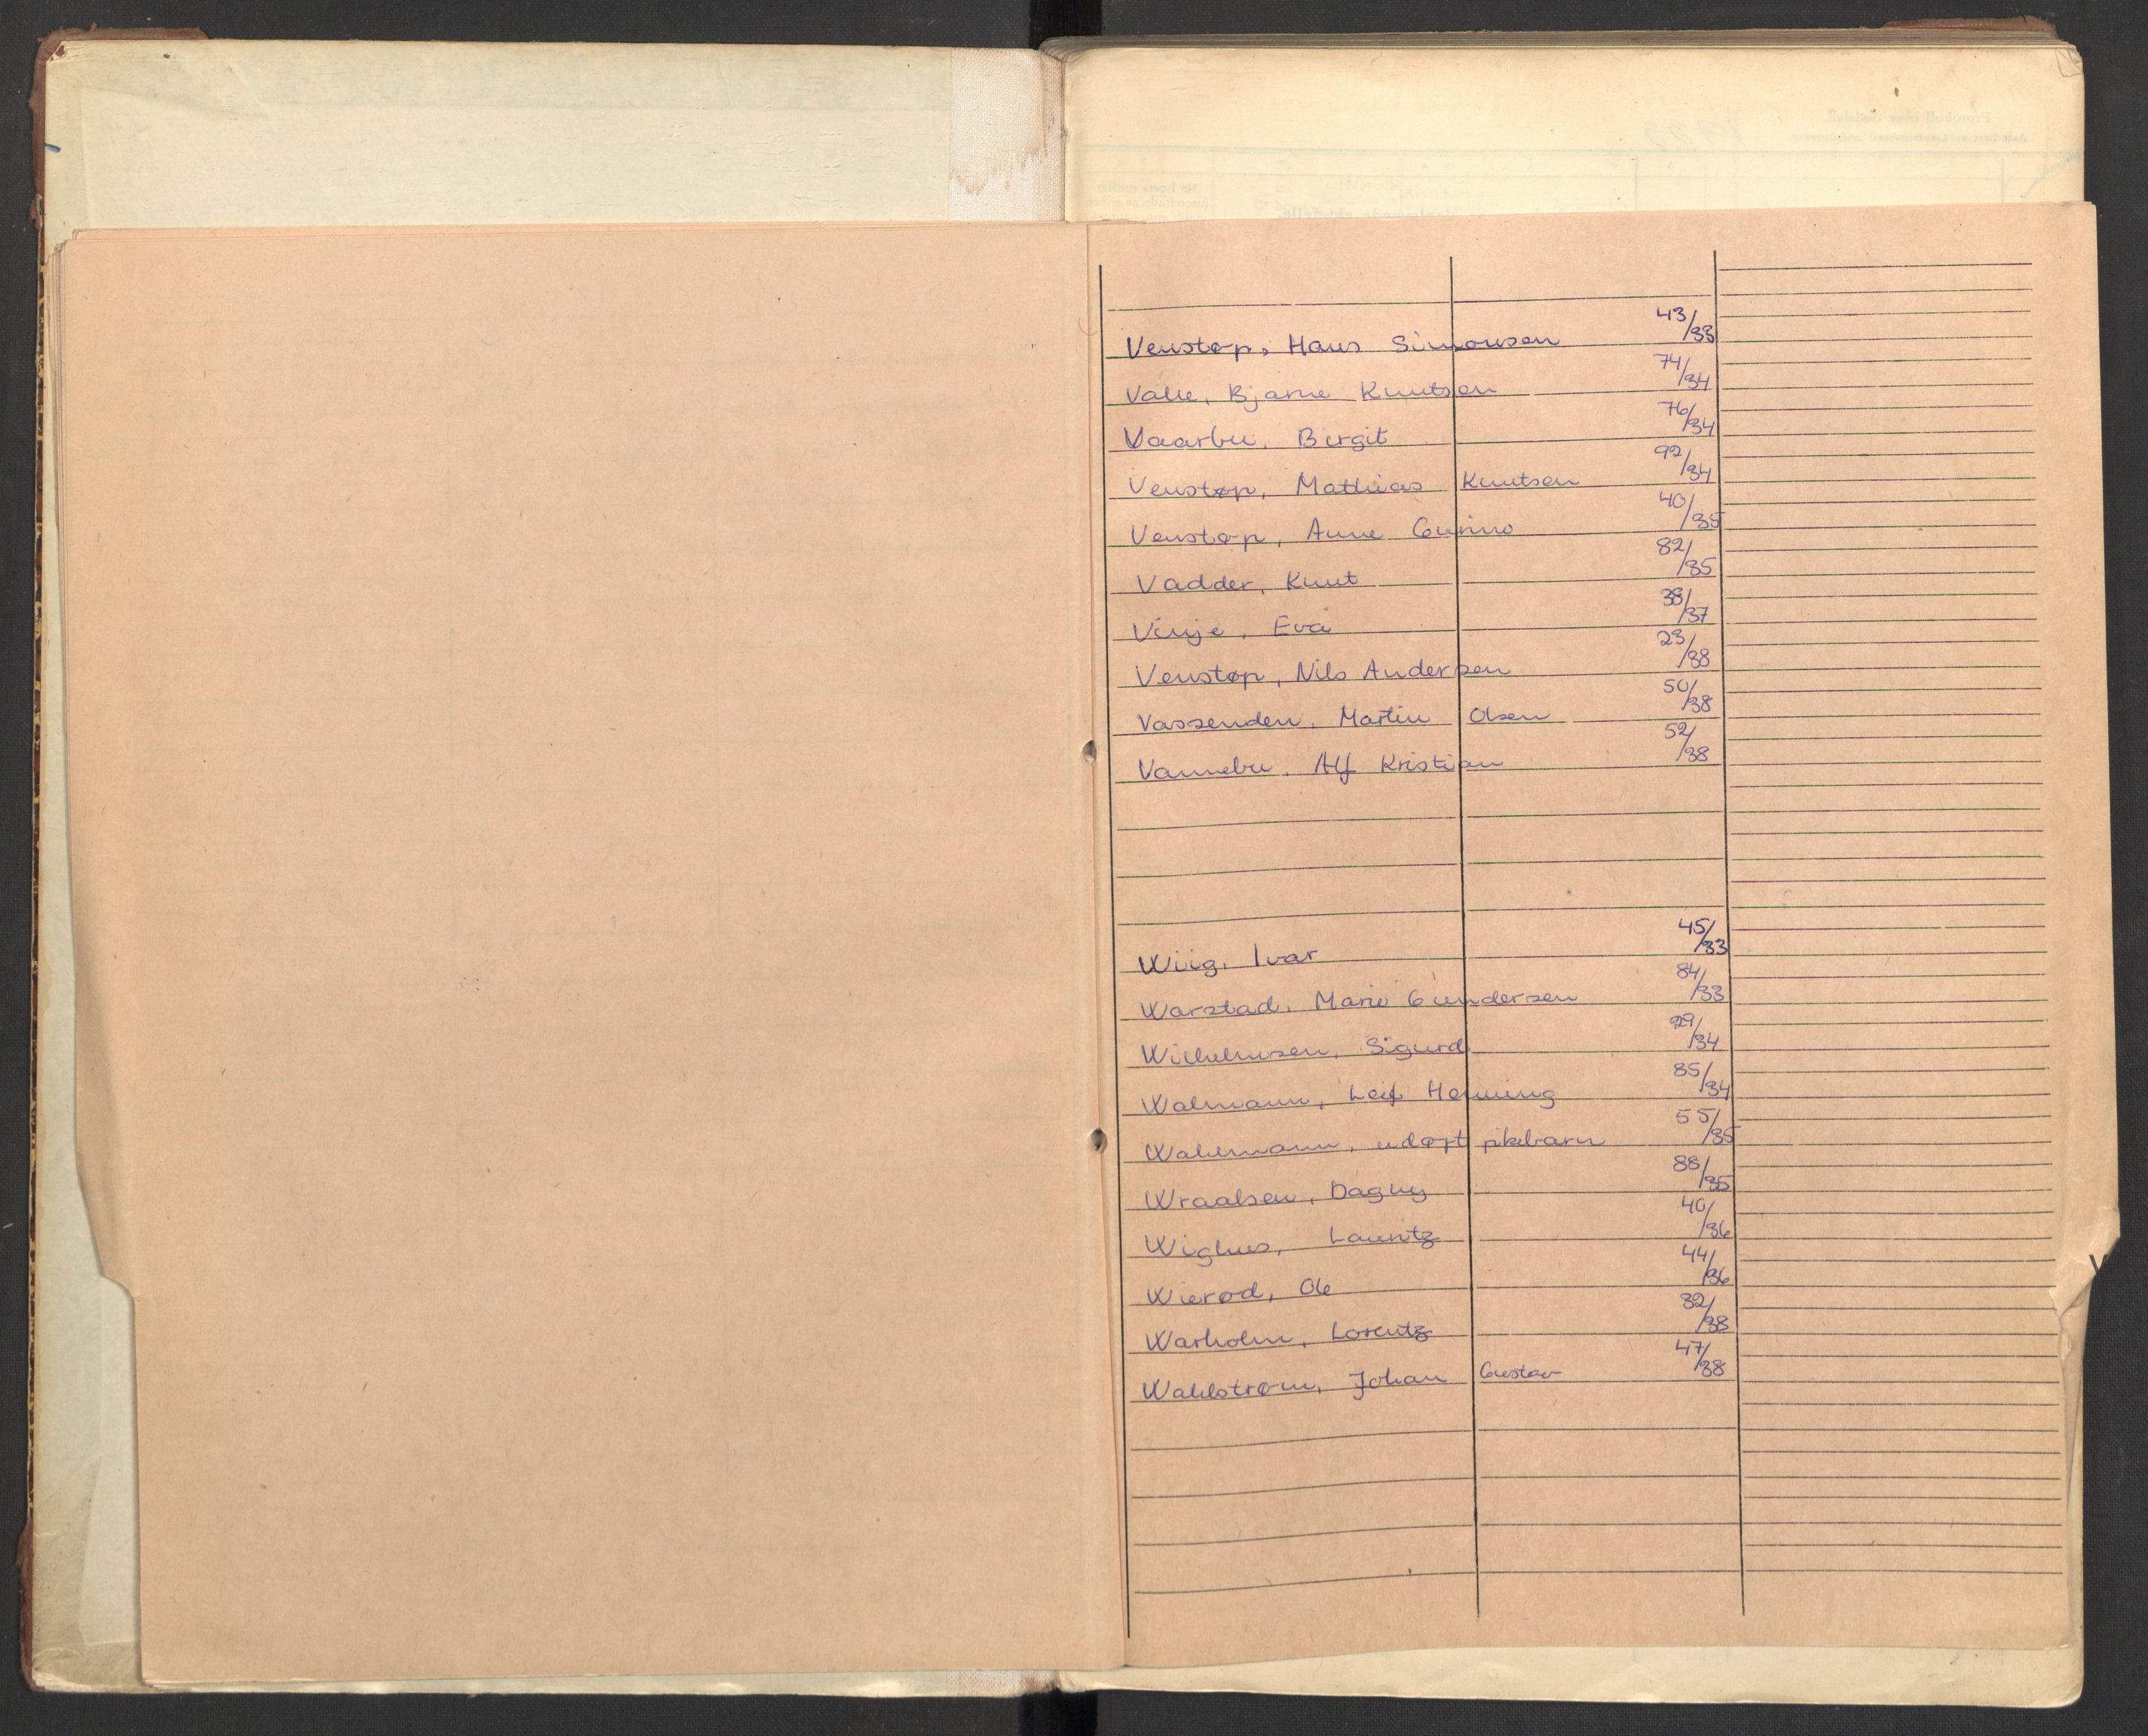 Venstøp, Hans Simonsen 43/33
Valle, Bjarne Knutsen 74/34
Vaarbu, Birgit 76/34
Venstøp, Mathias Knutsen 92/34
Venstøp, Anne Gurine 40/35
Vadder, Knut 82/35
Vinje, Eva 38/37
Venstøp, Nils Andersen 23/38
Vassenden, Martin Olsen 50/38
Vannebu, Alf Kristian 52/38
Wiig, Ivar 45/33
Warstad, Marie Gundersen 84/33
Wilhelmsen, Sigurd 29/34
Walmann, Leif Henning 85/34
Wahlmann, udøpt pikebarn 55/35
Wraalsen, Dagny 88/35
Wighus, Lauritz 40/36
Wierød, Ole 44/36
Warholm, Lorentz 32/38
Wahlstrøm, Johan Gustav 47/38